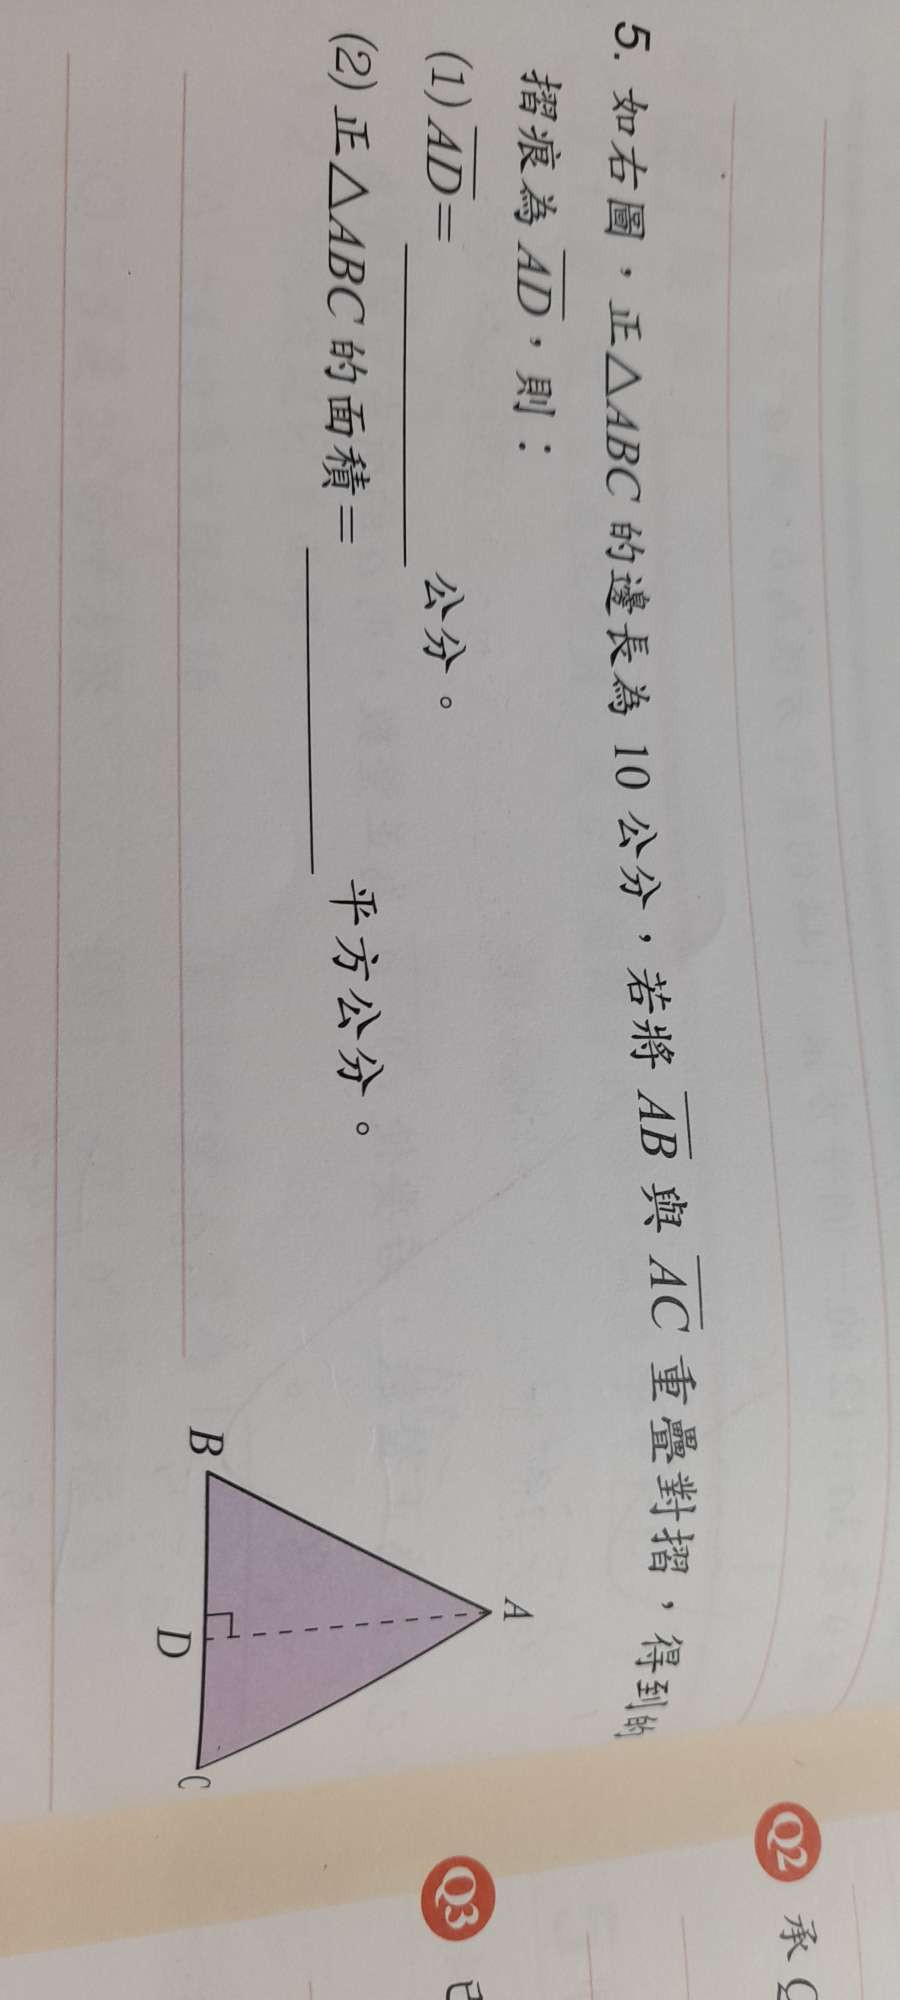 5. 如右圖，正△ABC 的邊長為 10 公分，若將 AB 與 AC 重疊對摺，得到的
摺痕為 AD，則：
(1) AD= ＿＿＿＿ 公分。
(2) 正△ABC 的面積= ＿＿＿＿ 平方公分。
A
B
D
C
Q2 承Q
Q3 已